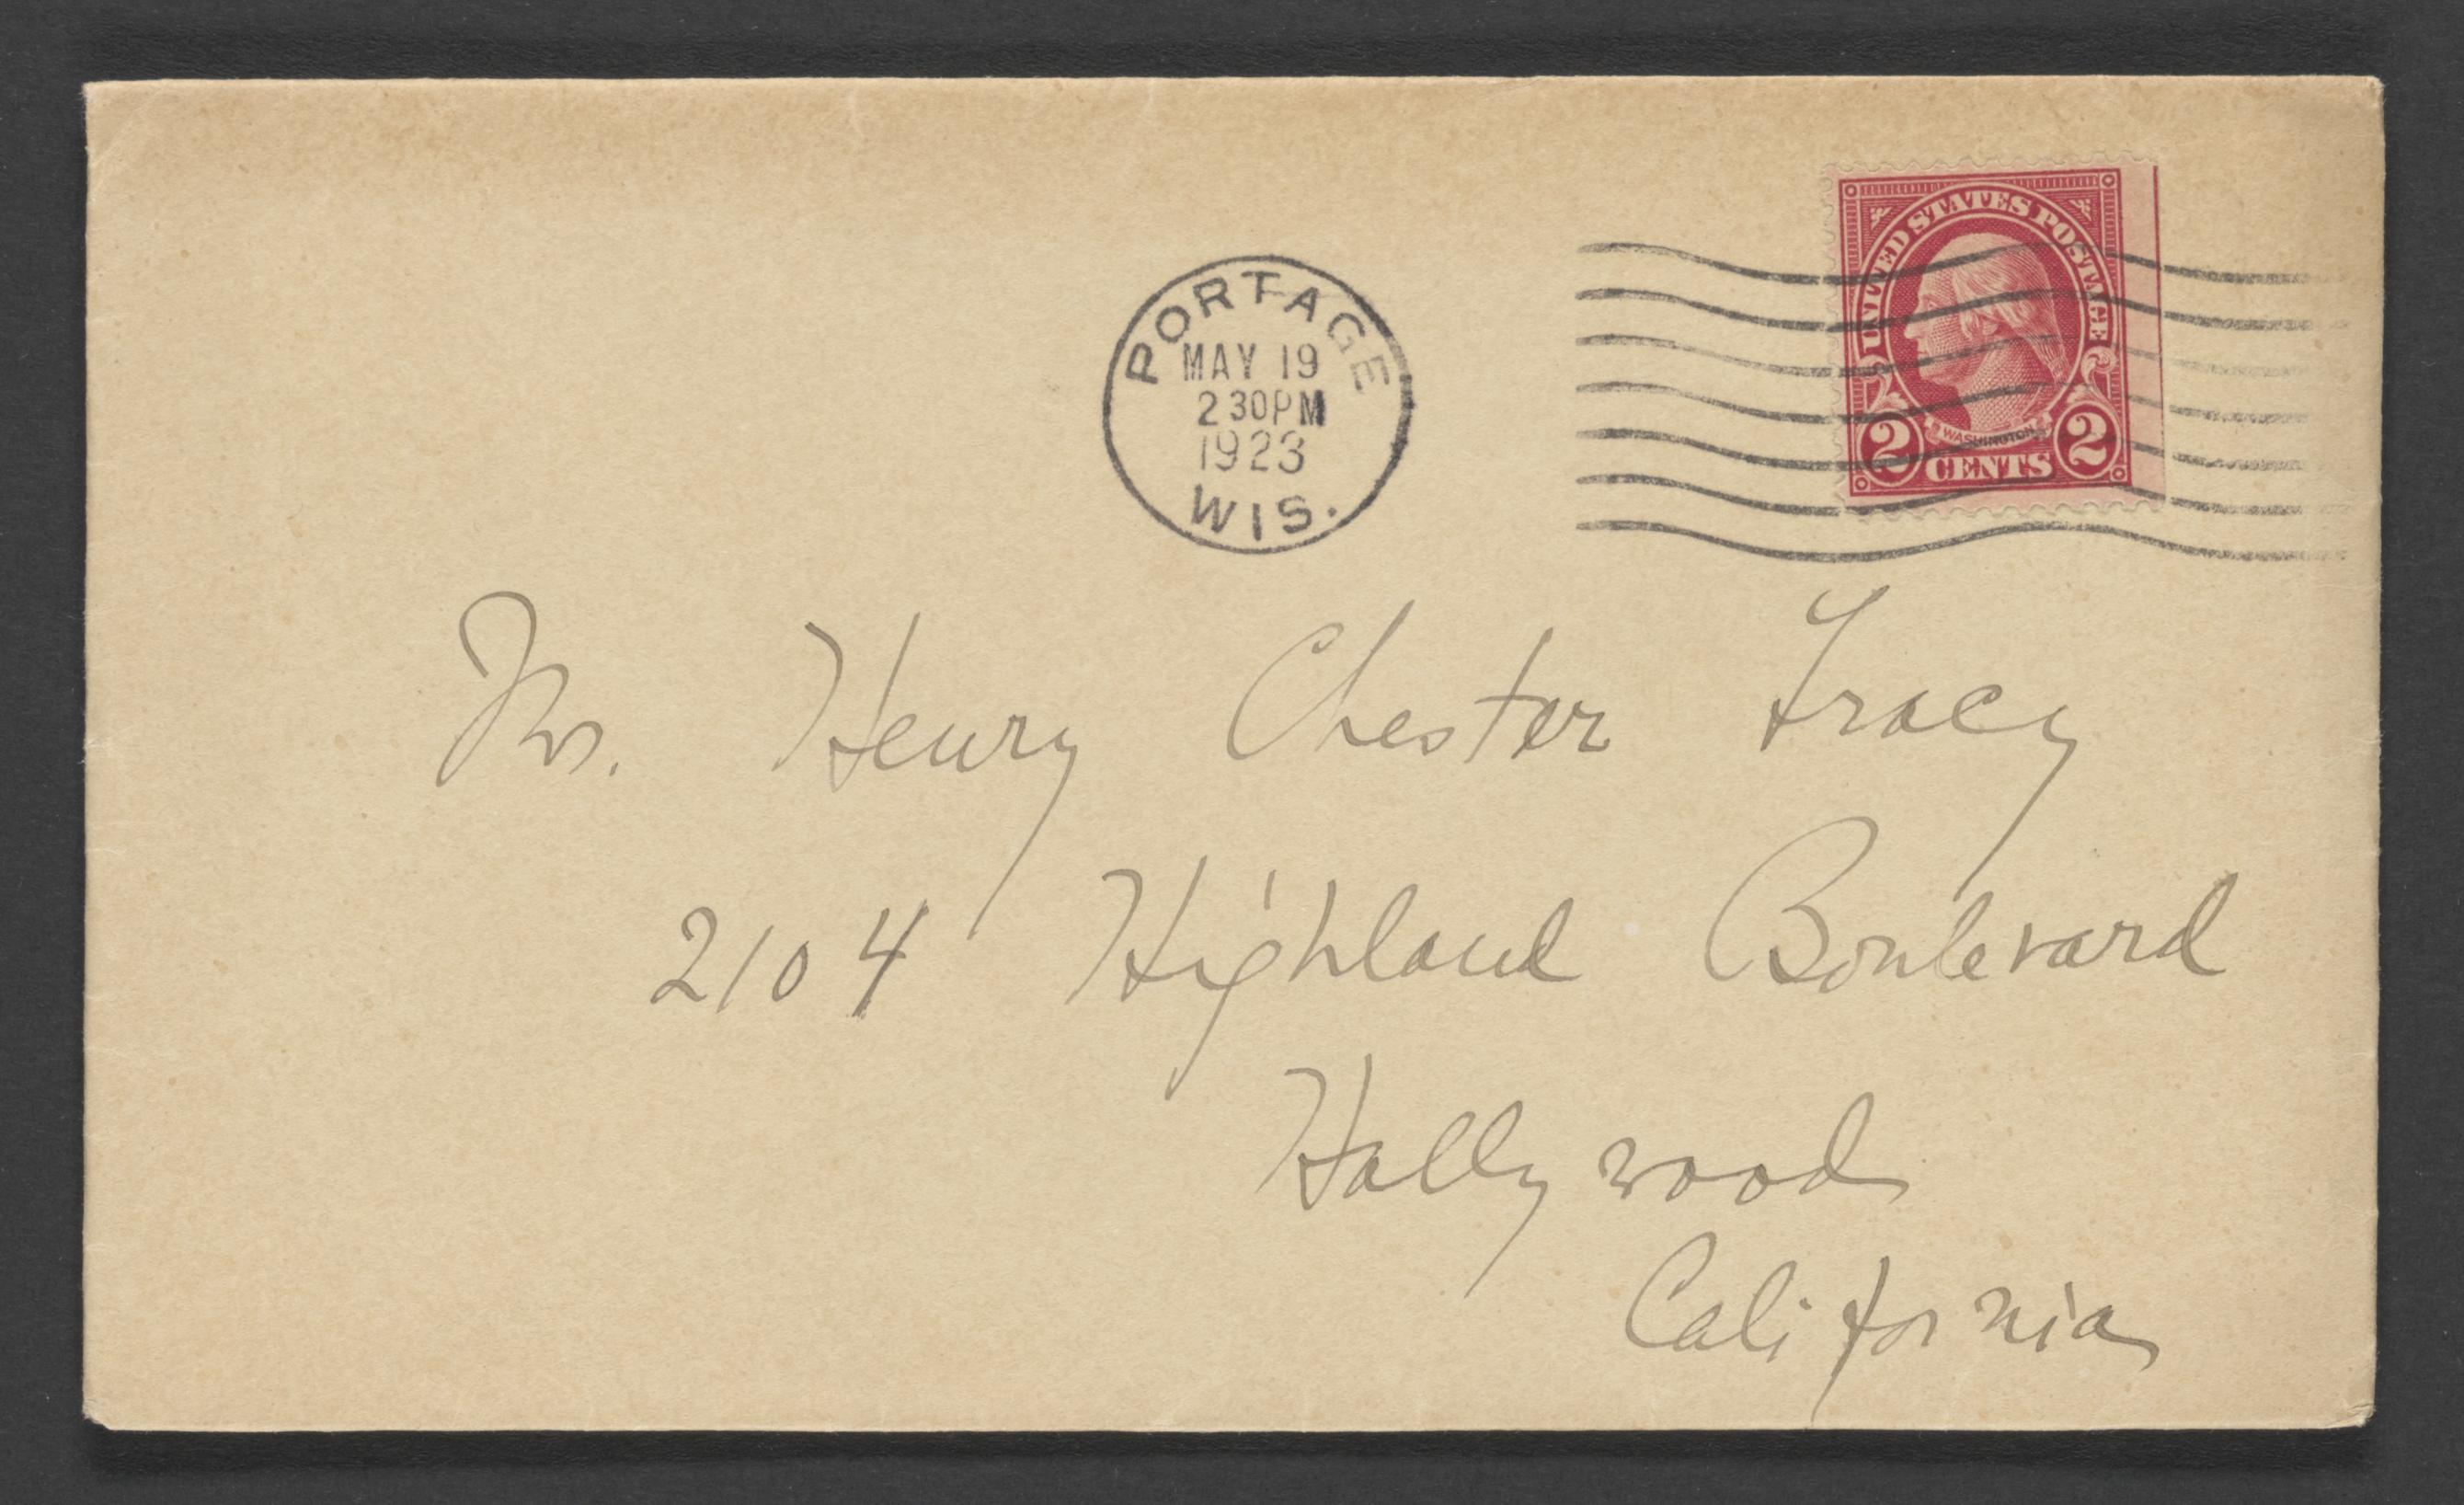 UNITED STATES POSTAGE
WASHINGTON
2 CENTS 2
PORTAGE
MAY 19
2 30PM
1923
WIS.
Mrs. Henry Chester Tracy
2104 Highland Boulevard
Hollywood
California